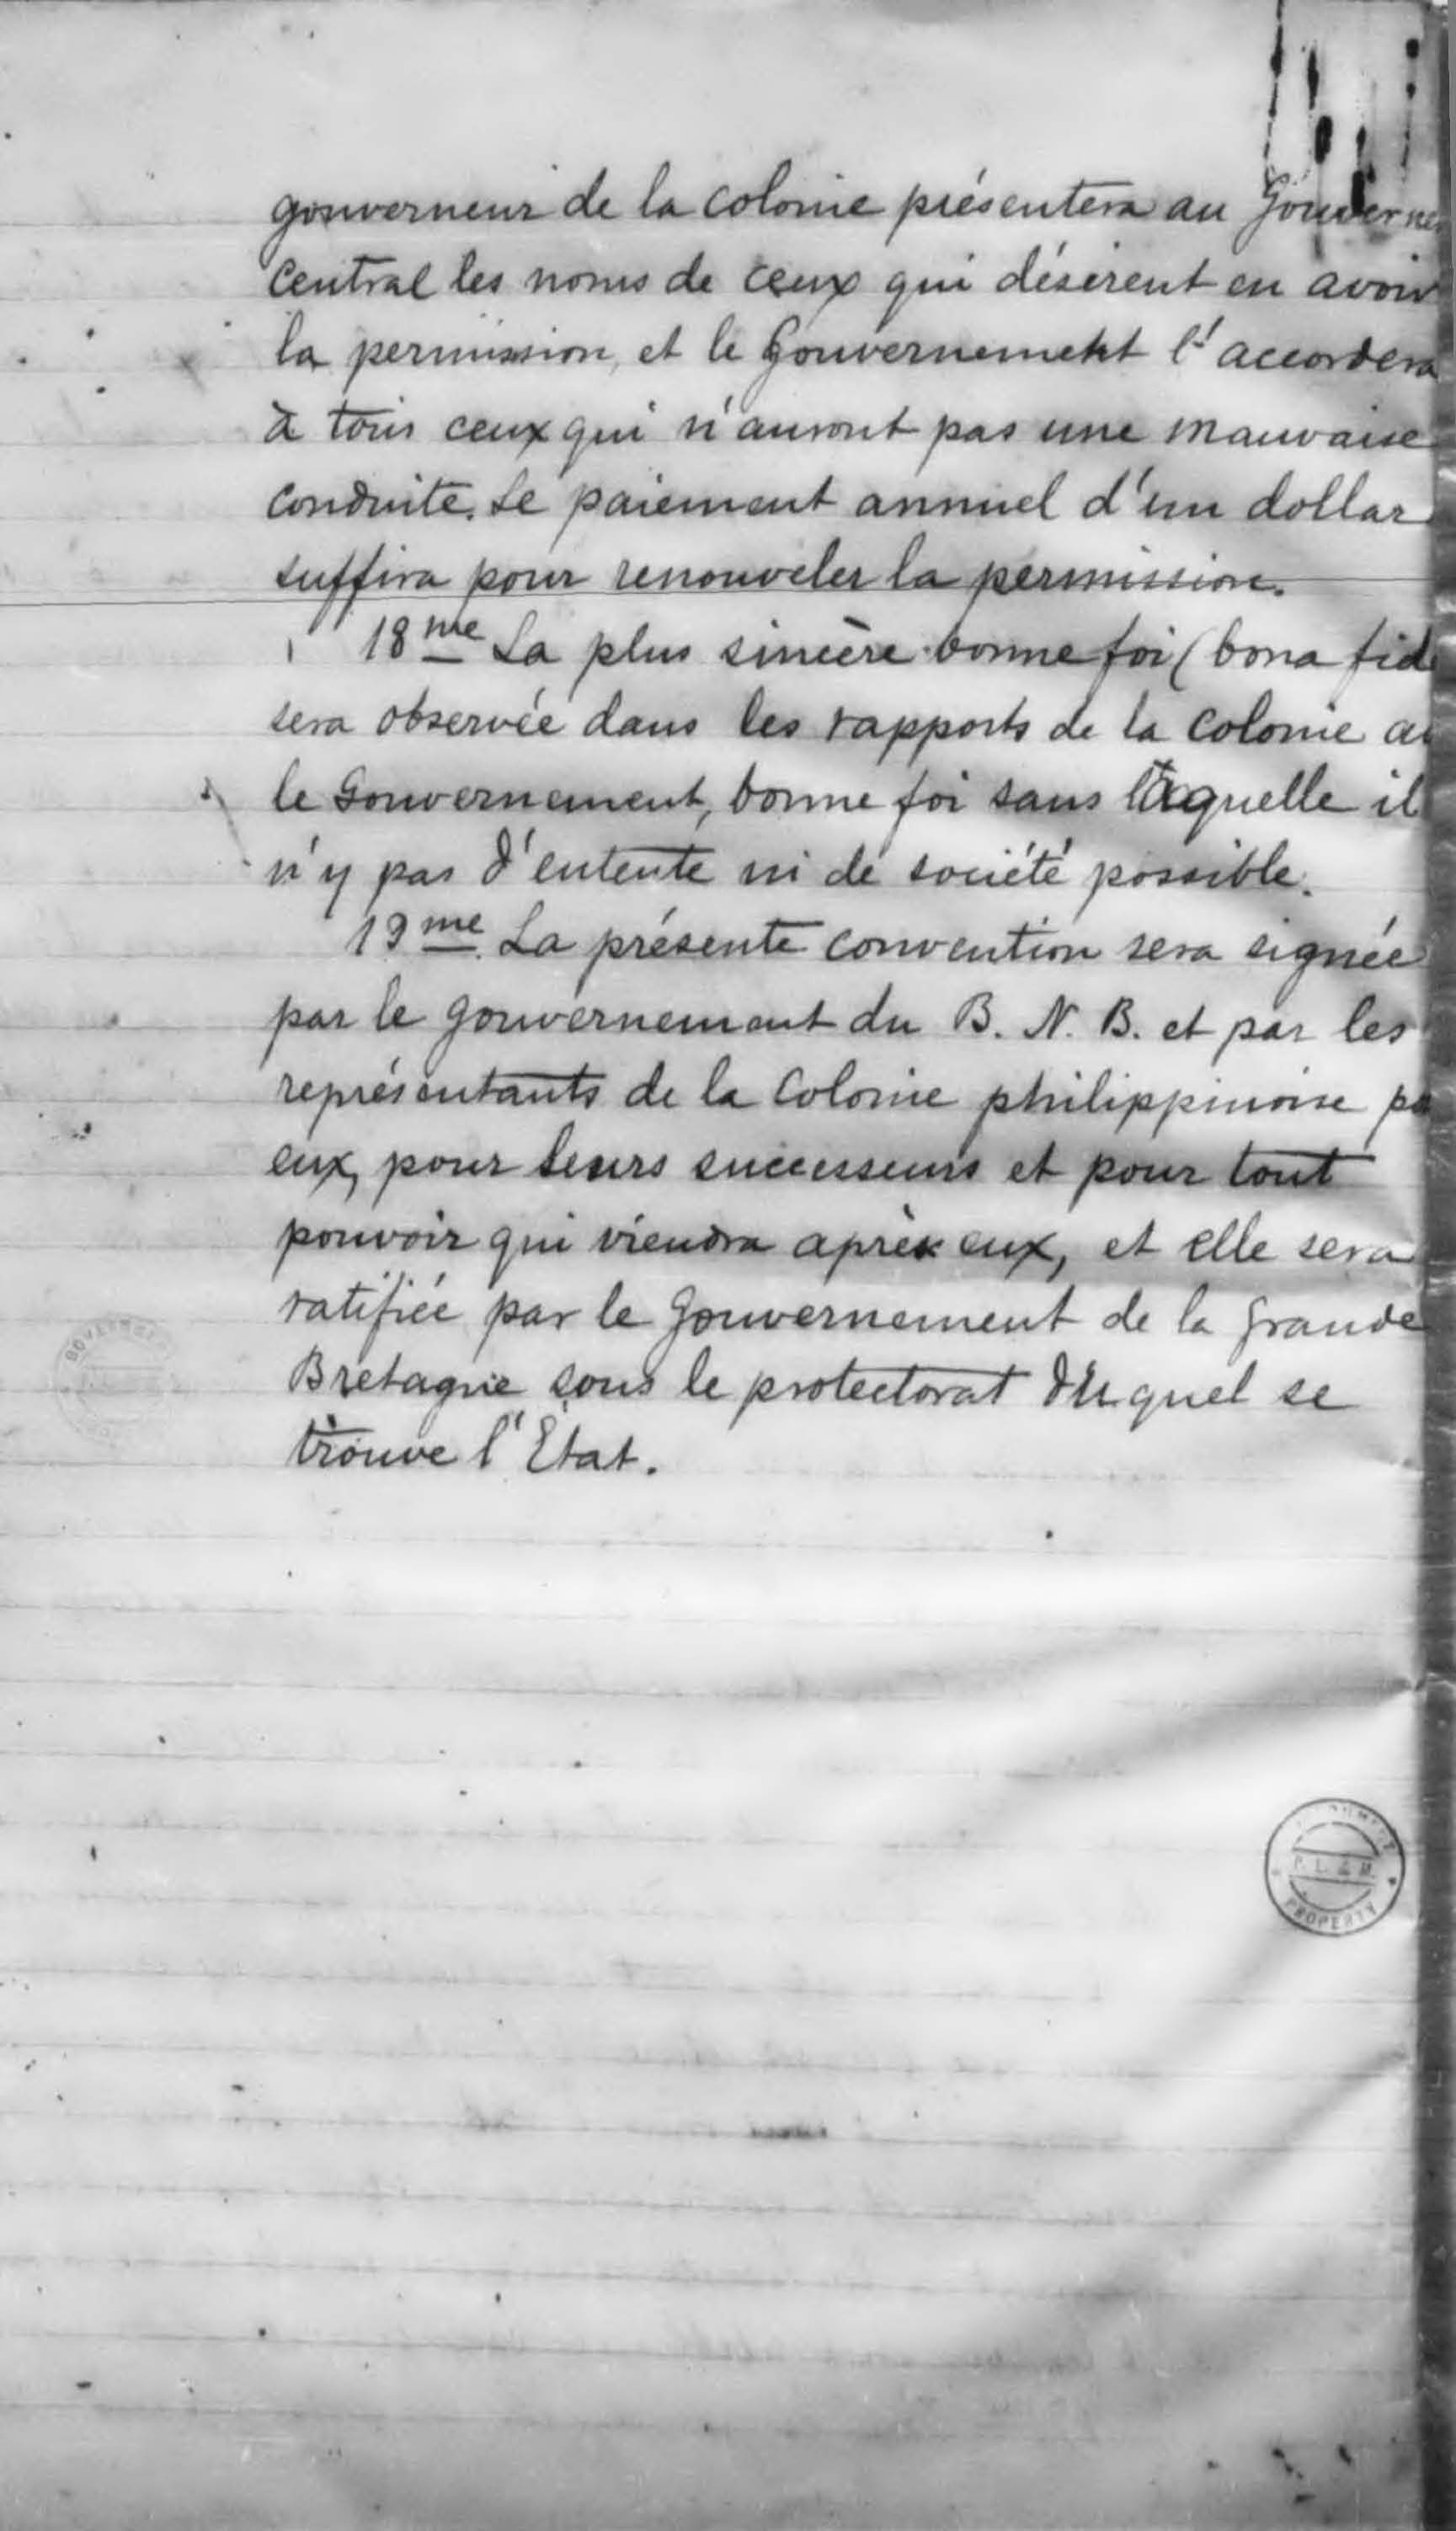 gouverneur de la colonie présentera au Gouverne
central les noms de ceux qui désirent en avoir
la permission, et le Gouvernement l'accordera
à tous ceux qui n'auront pas une mauvaise
conduite. Le paiement annuel d'un dollar
suffira pour renouveler la permission.
18me La plus sincère bonne foi (bona fid
sera observée dans les rapports de la colonie a
le Gouvernement, bonne foi sans laquelle il
n'y pas d'entente ni de société possible.
19me. La présente convention sera signée
par le gouvernement du B. N. B. et par les
représentants de la Colonie philippinoise po
eux, pour leurs successeurs et pour tout
pouvoir qui viendra après eux, et elle sera
ratifiée par le Gouvernement de la Grande
Bretagne sous le protectorat duquel se
trouve l'Etat.
P. L. & M.
PROPERTY